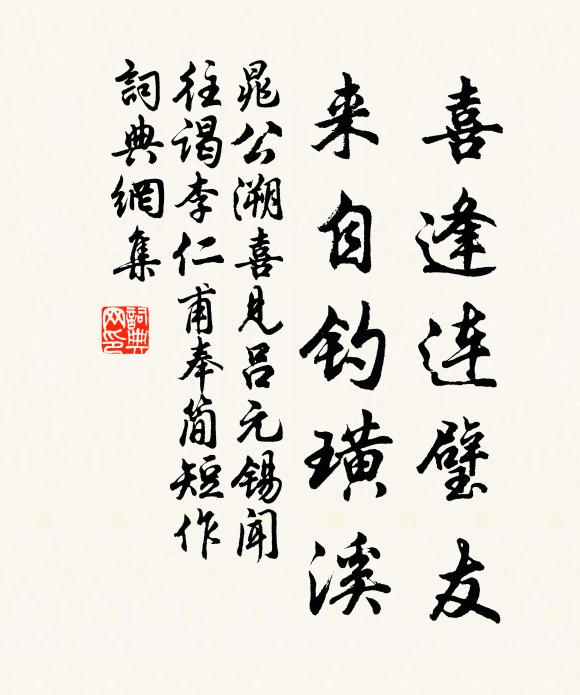 喜逢连璧友
来自钓璜溪
晁公溯喜見呂元锡闻
往謁李仁甫奉简短作
詞典網集
詞典网印